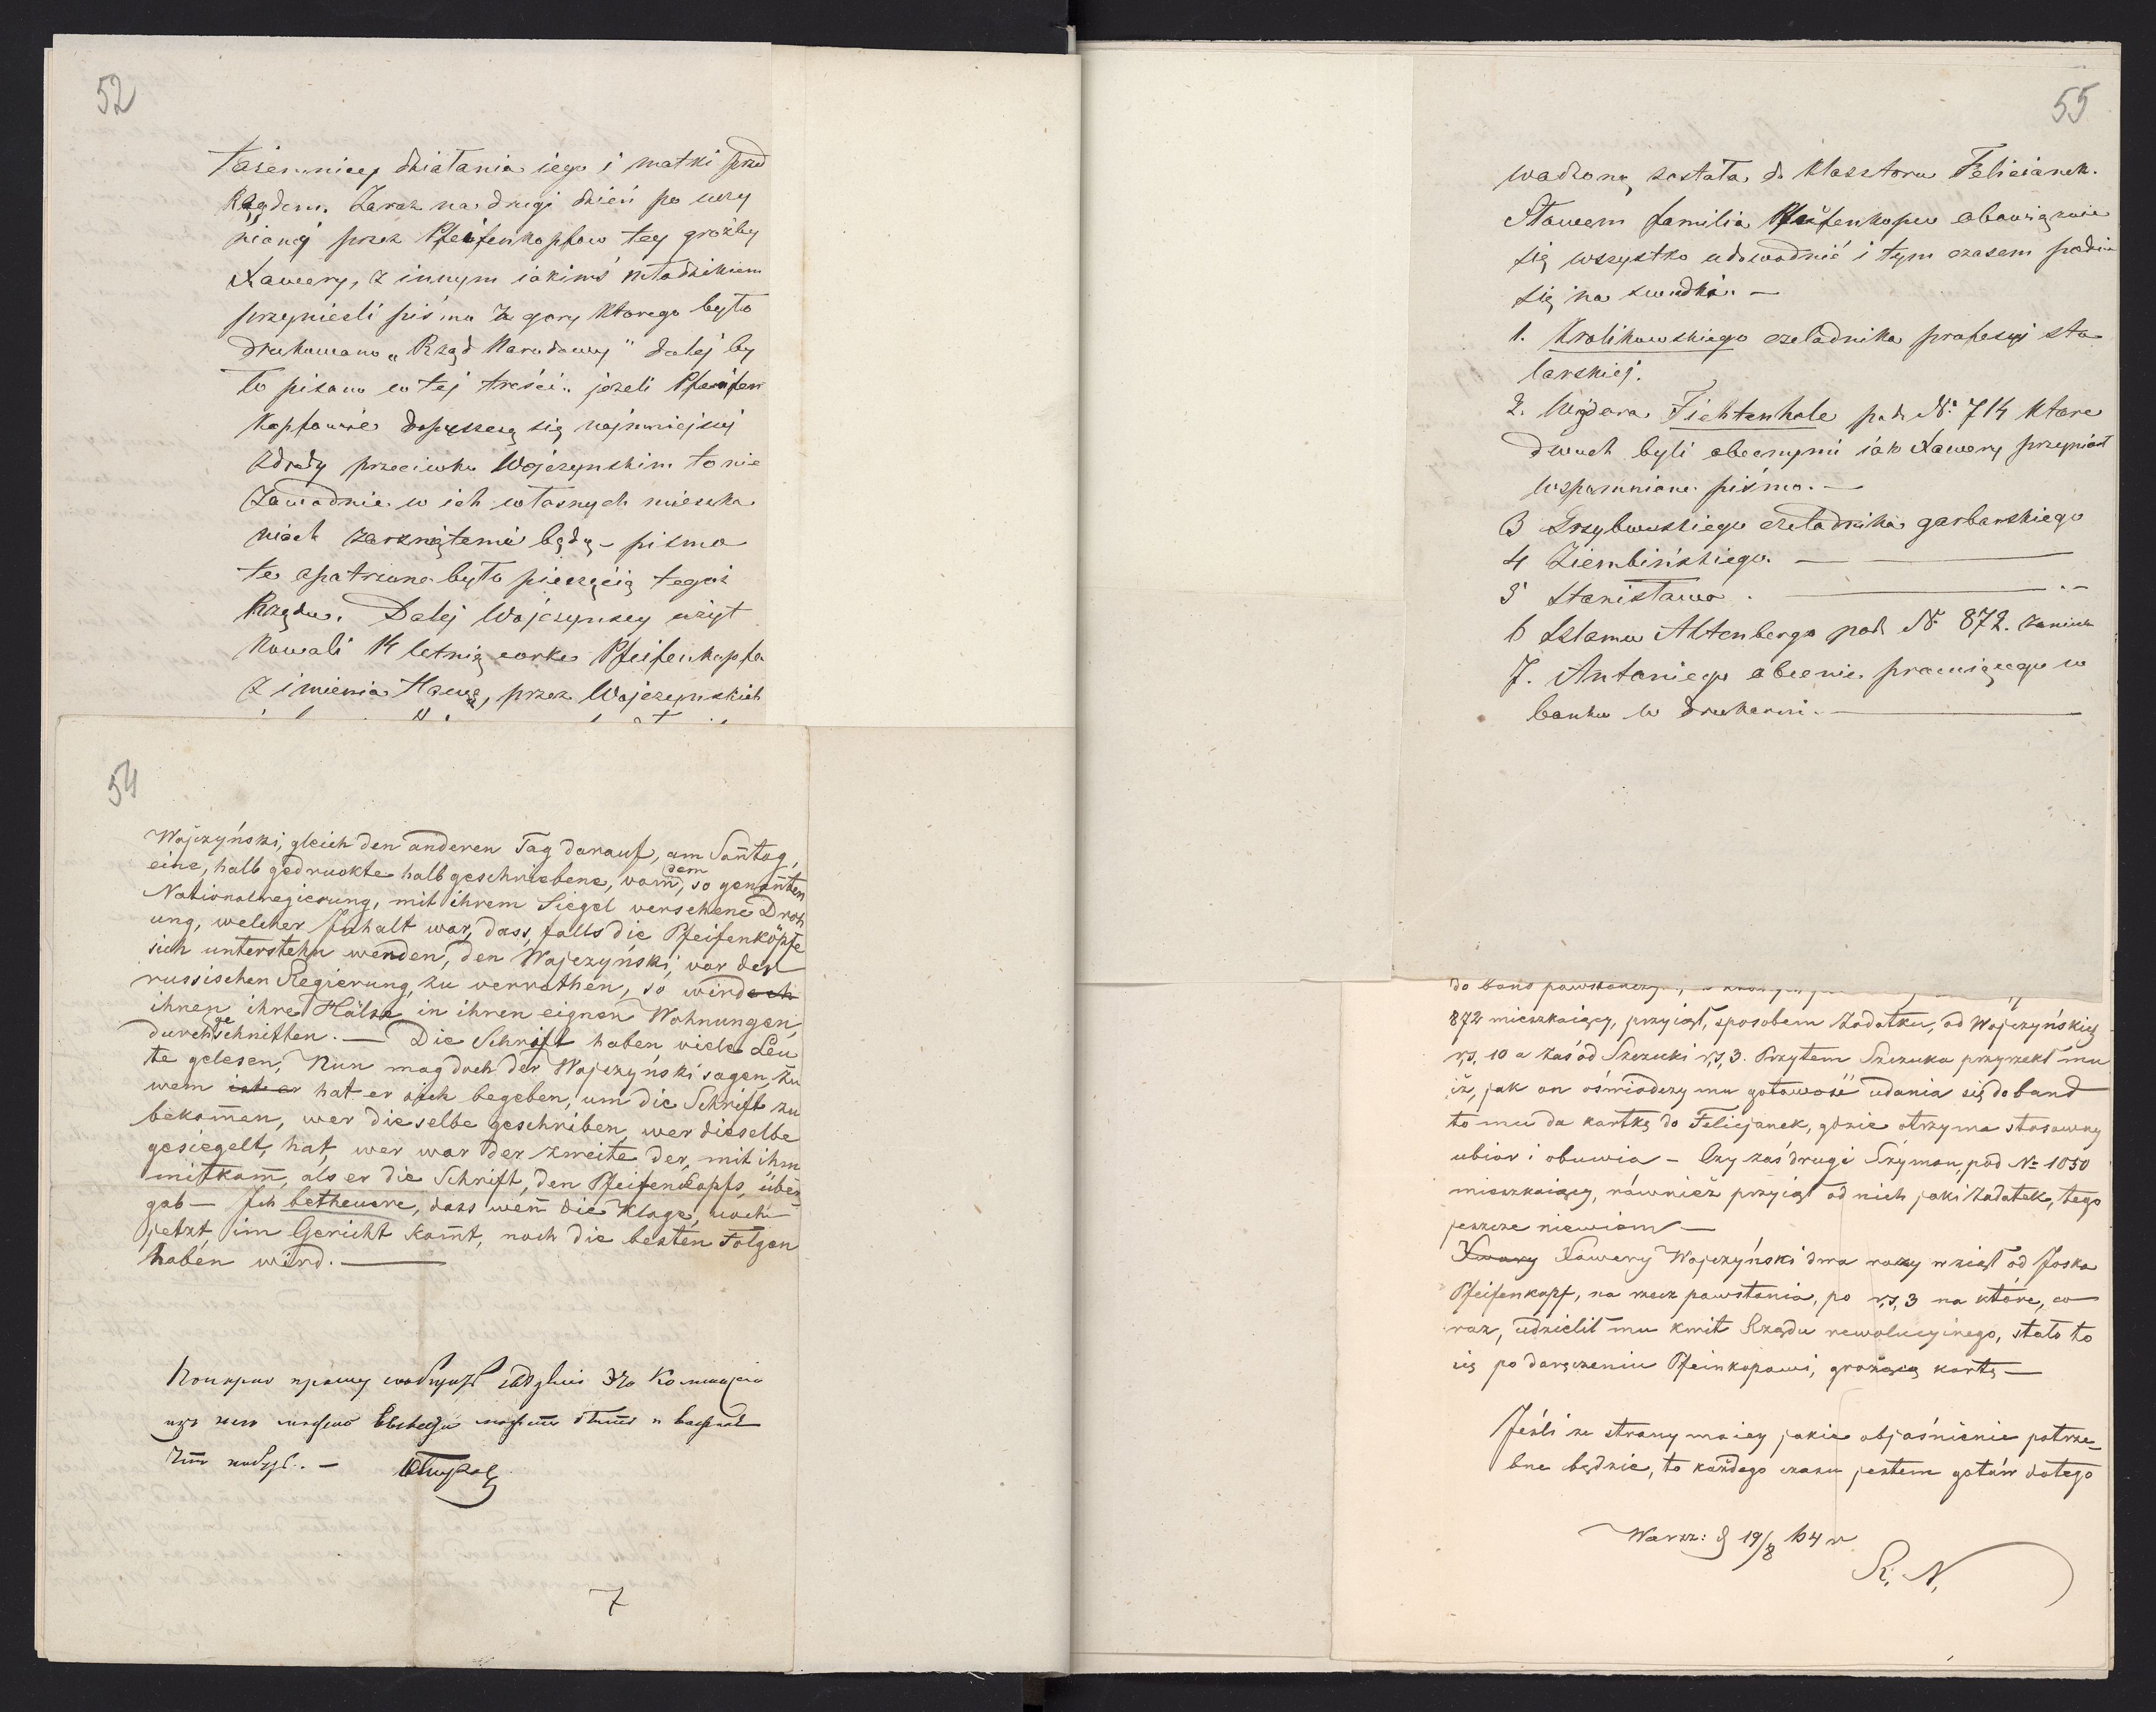 52
tajemnicy działania iego i matki przed
Rządem. Zaraz na drugi dzień po uczy
nioney przez Pfeifenkopfow tey groźby
Xawery, z innym iakimś młodzikiem
przynieśli pismo u gory ktorego było
drukowano „Rząd Narodowy" dalej by
ło pisano w tej treści „ jeżeli Pfeifen
kopfowie dopuszczą się najmniejszej
zdrady przeciwko Wojczynskim to nie
zawodnie w ich własnych mieszka
niach zarzniętemi będą – pismo
te opatrzone było pieczęcią tegoż
Rządu. Dalej Wojczynscy użyt
kowali 14 letnią corke Pfeifenkopfa
z imienia, przez Wojczynskich
54
Wojczyński, gleich den anderen Tag darauf, am Sontag,
eine, halb gedruckte halb geschriebene, vom dem, so genanten
Nationalregierung, mit ihrem Siegel versehene Droh
ung, welcher Inhalt war, dass, falls die Pfeifenköpfe
sich unterstehn werden, den Wojczyński, vor der
russischen Regierung, zu verrathen, so wird
ihnen ihre Hälse in ihren eignen Wohnungen,
durchgeschnitten. — Die Schrift haben viele Leu
te gelesen, Nun mag doch der Wojczyński sagen, zu
wem ist er hat er sich begeben, um die Schrift zu
bekomen, wer dieselbe geschriben, wer dieselbe
gesiegelt, hat, wer war der zweite der, mit ihm
mitkam, als er die Schrift, den Pfeifenkopfs, über
gab — Ich betheuere, dass wen die Klage, noch
jetzt, im Gericht komt, noch die besten Folgen
haben wird. —
7
55
wadzoną została do klasztoru Felicianek.
Słowem familia Pfeifenkopow obowiązuie
się wszystko udowodnić i tym czasem podaie
się na swiadkow —
1. Krolikowskiego czeladnika profesyi sto
larskiej.
2. Wigdora Fichtenhole pod N: 714 ktore
dwuch byli obecnymi iak Xawery przyniosł
wspomniane pismo. —
3 Przybowskiego czeladnika garbarskiego
4 Ziembińskiego. —
5 Stanisława. —
6 Szlama Altenberga pod N: 872.
7. Antoniego obecnie pracuiącego w
banku w drukarni. —
872 mieszkaiący, przyiął, sposobem zadatku, od Wojczyńskiej
rs. 10 a zaś od Szczuki rs. 3. Przytem Szczuka przyrzekł mu
iż, jak on oświadczy mu gotowość udania się do band
to mu da kartkę do Felicjanek, gdzie otrzyma stosowny
ubior i obuwia – Czy zaś drugi Szymon, pod № 1050
mieszkaiący, również przyiął od nich jaki zadatek, tego
jeszcze niewiem —
Xwary Xawery Wojczyński dwa razy wziął od Joska
Pfeifenkopf, na rzecz powstania, po rs, 3 na które, co
raz, udzielił mu kwit Rządu rewolucyjnego, stało to
się po doręczeniu Pfeinkopowi, grożącą kartę —
Jeśli ze strony moiey jakie objaśnienie potrze-
bne będzie, to każdego czasu jestem gotów do tego
Warsz: d 19/8 64 r
R. N.